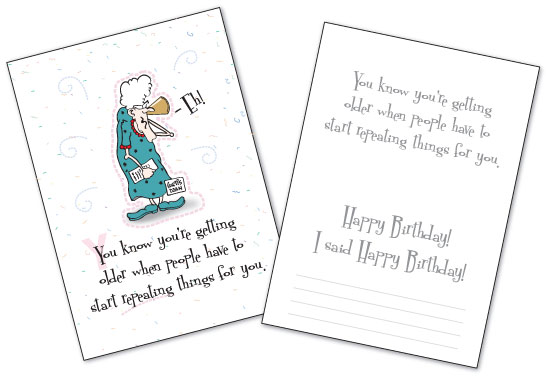 - Eh!
You know you're getting
older when people have to
start repeating things for you.
You know you're getting
older when people have to
start repeating things for you.
Happy Birthday!
I said Happy Birthday!